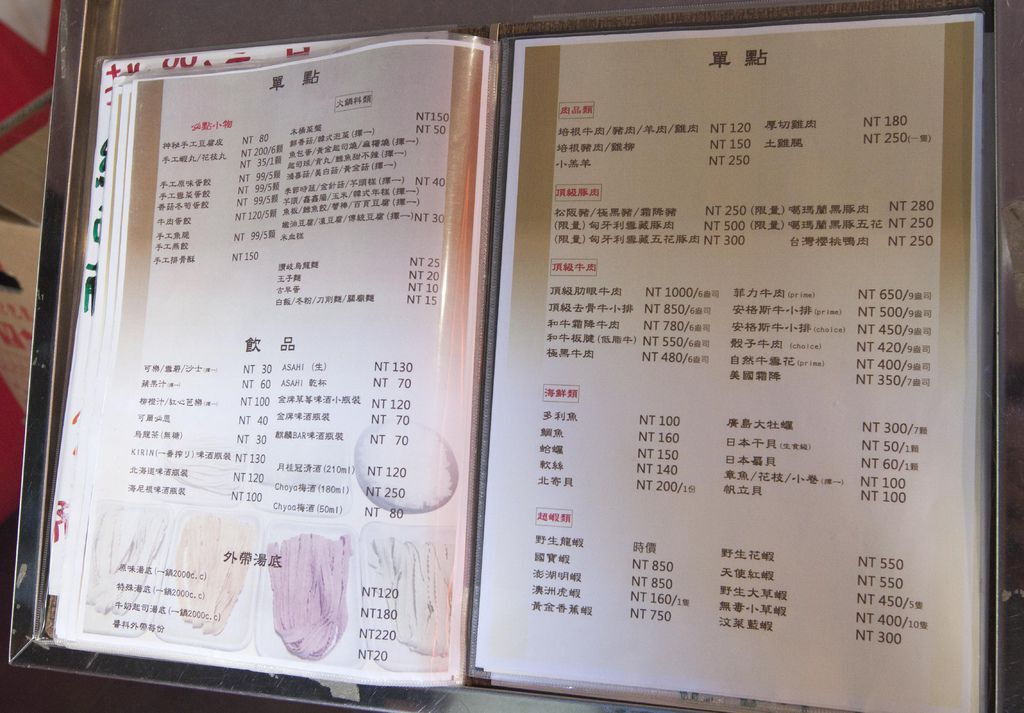 單 點
火鍋料類
點小物
神秘手工豆腐皮 NT 80
手工蝦丸/花枝丸 NT 200/6顆
NT 35/1顆
手工原味蛋餃 NT 99/5顆
手工韭菜蛋餃 NT 99/5顆
香菇冬筍蛋餃 NT 99/5顆
牛肉蛋餃 NT 120/5顆
手工魚脆
手工燕餃 NT 99/5顆
手工排骨酥 NT 150
木桶菜盤 NT150
鮮香菇/韓式泡菜(擇一) NT 50
魚包蛋/黃金起司燒/麻糬燒(擇一)
起司球/貢丸/鱈魚甜不辣(擇一)
鴻喜菇/美白菇/黃金菇(擇一)
季節時蔬/金針菇/芋頭糕(擇一) NT 40
芋頭/鑫鑫腸/玉米/韓式年糕(擇一)
魚板/鱈魚餃/蟹棒/百頁豆腐(擇一)
嫩油豆腐/凍豆腐/傳統豆腐(擇一) NT 30
米血糕
讚岐烏龍麵 NT 25
王子麵 NT 20
古早蛋 NT 10
白飯/冬粉/刀削麵/關廟麵 NT 15
飲 品
可樂/雪碧/沙士(擇一) NT 30
蘋果汁(擇一) NT 60
柳橙汁/紅心芭樂(擇一) NT 100
可爾必思 NT 40
烏龍茶(無糖) NT 30
KIRIN(一番搾り)啤酒瓶裝 NT 130
北海道啤酒瓶裝 NT 120
海尼根啤酒瓶裝 NT 100
ASAHI (生) NT 130
ASAHI 乾杯 NT 70
金牌草莓啤酒小瓶裝 NT 120
金牌啤酒瓶裝 NT 70
麒麟BAR啤酒瓶裝 NT 70
月桂冠清酒(210ml) NT 120
Choya梅酒(180ml) NT 250
Choya梅酒(50ml) NT 80
外帶湯底
原味湯底(一鍋2000c.c) NT120
特殊湯底(一鍋2000c.c) NT180
牛奶起司湯底(一鍋2000c.c) NT220
醬料外帶每份 NT20
單 點
肉品類
培根牛肉/豬肉/羊肉/雞肉 NT 120 厚切雞肉 NT 180
培根豬肉/雞柳 NT 150 土雞腿 NT 250(一隻)
小羔羊 NT 250
頂級豚肉
松阪豬/極黑豬/霜降豬 NT 250 (限量)噶瑪蘭黑豚肉 NT 280
(限量)匈牙利雪藏豚肉 NT 500 (限量)噶瑪蘭黑豚五花 NT 250
(限量)匈牙利雪藏五花豚肉 NT 300 台灣櫻桃鴨肉 NT 250
頂級牛肉
頂級肋眼牛肉 NT 1000/6盎司 菲力牛肉(prime) NT 650/9盎司
頂級去骨牛小排 NT 850/6盎司 安格斯牛小排(prime) NT 500/9盎司
和牛霜降牛肉 NT 780/6盎司 安格斯牛小排(choice) NT 450/9盎司
和牛板腱(低脂牛) NT 550/6盎司 骰子牛肉 (choice) NT 420/9盎司
極黑牛肉 NT 480/6盎司 自然牛雪花(prime) NT 400/9盎司
美國霜降 NT 350/7盎司
海鮮類
多利魚 NT 100 廣島大牡蠣 NT 300/7顆
鯛魚 NT 160 日本干貝(生食級) NT 50/1顆
蛤蠣 NT 150 日本扇貝 NT 60/1顆
軟絲 NT 140 章魚/花枝/小卷(擇一) NT 100
北寄貝 NT 200/1份 帆立貝 NT 100
超蝦類
野生龍蝦 時價 野生花蝦 NT 550
國寶蝦 NT 850 天使紅蝦 NT 550
澎湖明蝦 NT 850 野生大草蝦 NT 450/5隻
澳洲虎蝦 NT 160/1隻 無毒小草蝦 NT 400/10隻
黃金香蕉蝦 NT 750 汶萊藍蝦 NT 300